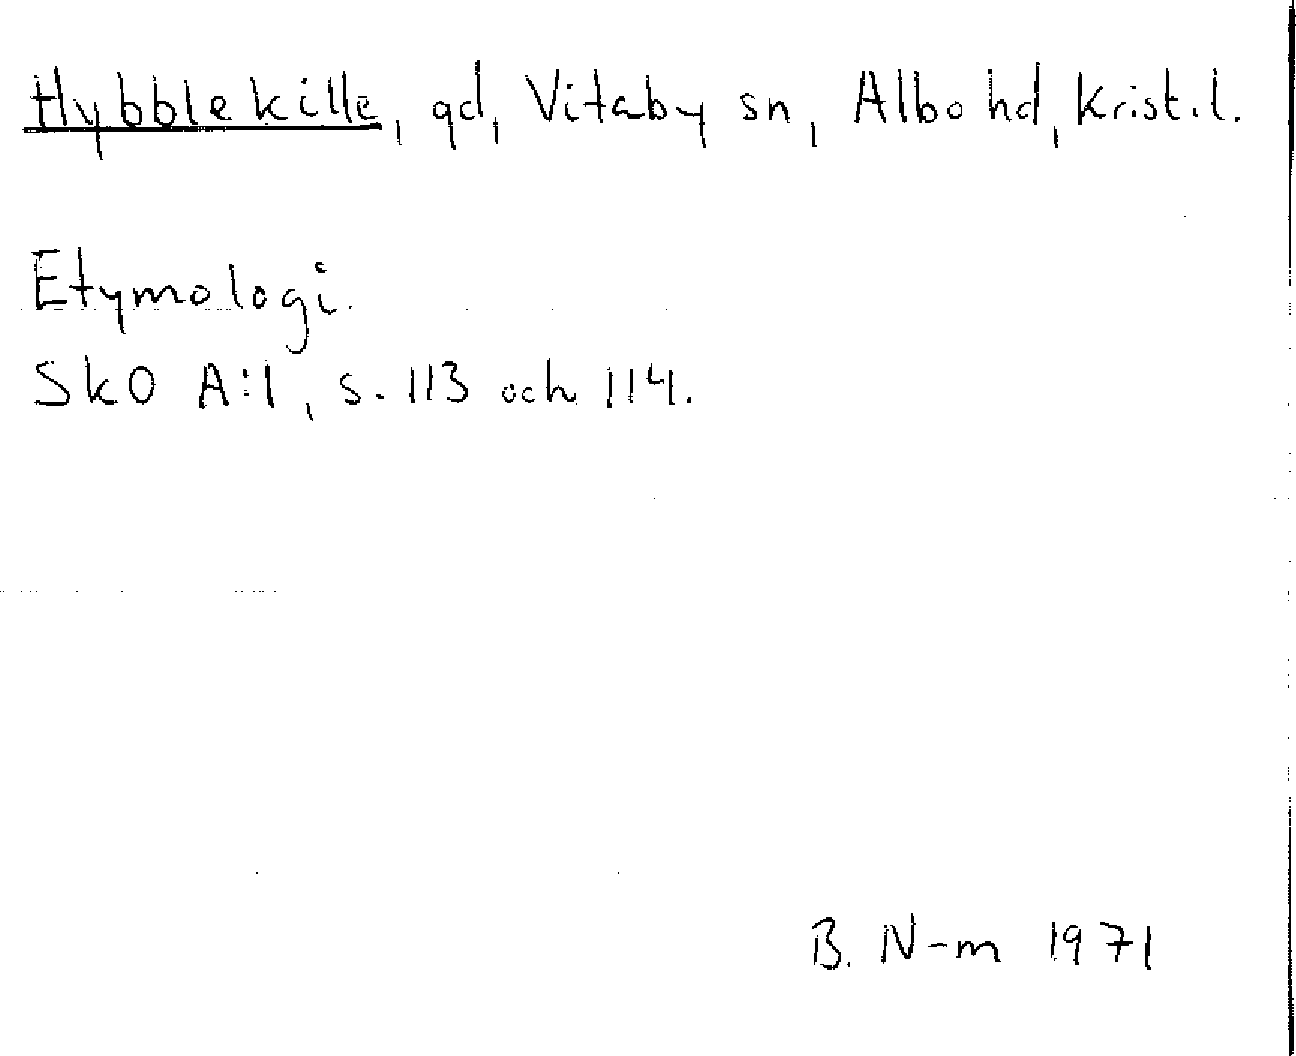 Hybblekille, gd, Vitaby sn, Albo hd, Krist.l.
Etymologi.
SkO A:1, s. 113 och 114.
B. N-m 1971